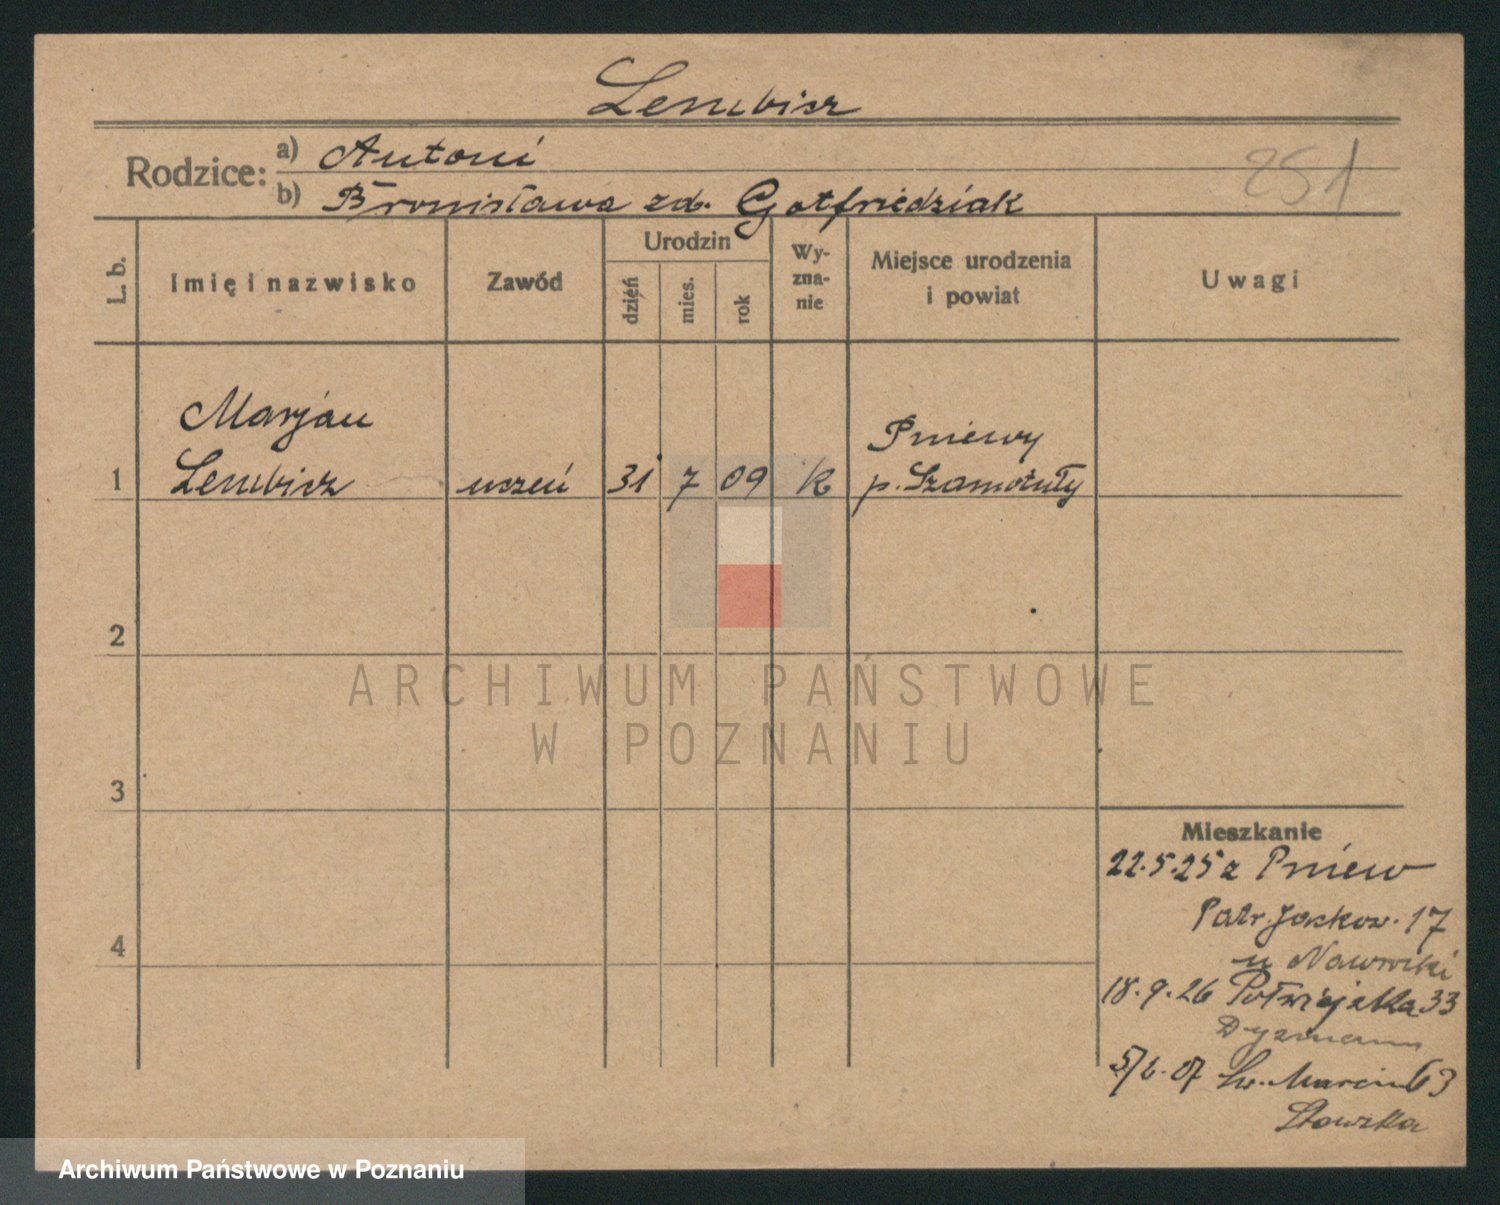 Lembicz
Rodzice: a) Antoni
b) Bronisława zd. Gotfriedziak
251
L. b.
Imię i nazwisko
Zawód
Urodzin
dzień
mies.
rok
Wy-
zna-
nie
Miejsce urodzenia
i powiat
Uwagi
Marjan
1 Lembicz uczeń 31 7 09 k
Pniewy
p. Szamotuły
2
ARCHIWUM PAŃSTWOWE
W POZNANIU
3
4
Mieszkanie
22.5.25 z Pniew
Patr. Jackow. 17
u Nawrocki
18.9.26 Półwiejska 33
5/6.07 Św. Marcin 63
Archiwum Państwowe w Poznaniu